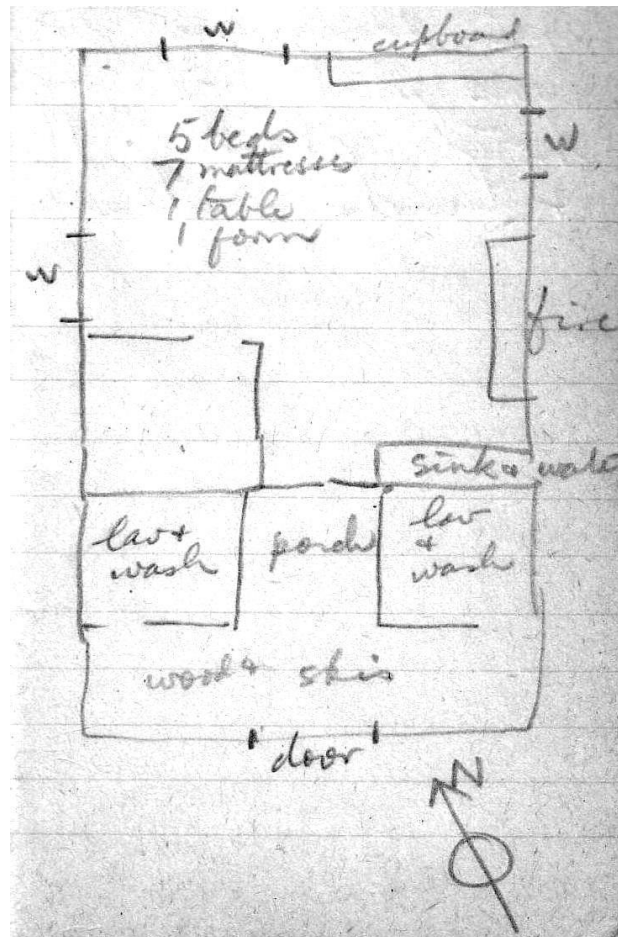 W
cupboard
5 beds
7 mattresses
1 table
1 form
W
W
fire
sink + wate
lav +
wash
porch
lav
+
wash
wood + skis
door
N